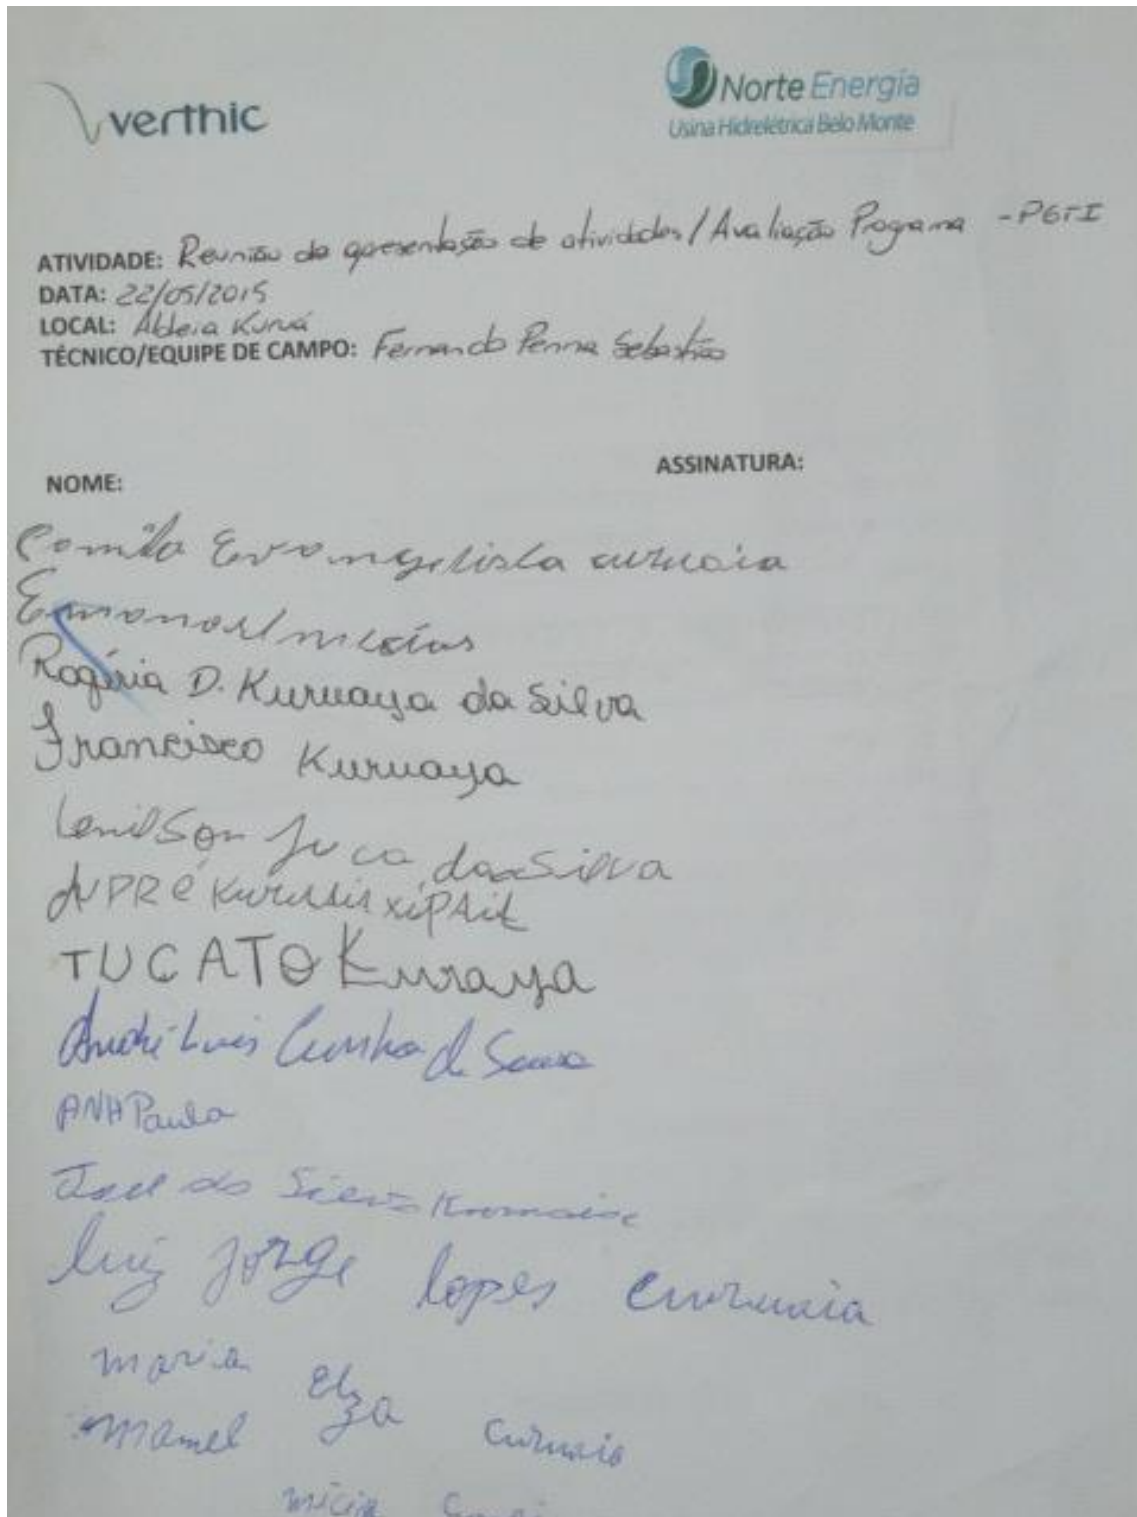 verthic
Norte Energia
Usina Hidrelétrica Belo Monte
ATIVIDADE: Reunião de apresentação de atividades / Avaliação Programa - PGTI
DATA: 22/05/2015
LOCAL: Aldeia Kuruá
TÉCNICO/EQUIPE DE CAMPO: Fernando Penna Sebastião
NOME:
ASSINATURA:
Camila Evangelista curuaia
Rogéria D. Kuruaya da Silva
Francisco Kuruaya
Lenilson Juca da Silva
TUCATO Kuraya
André Luis Cunha de Sousa
ANA Paula
luiz jorge lopes curuaia
maria elza
manoel curuaia